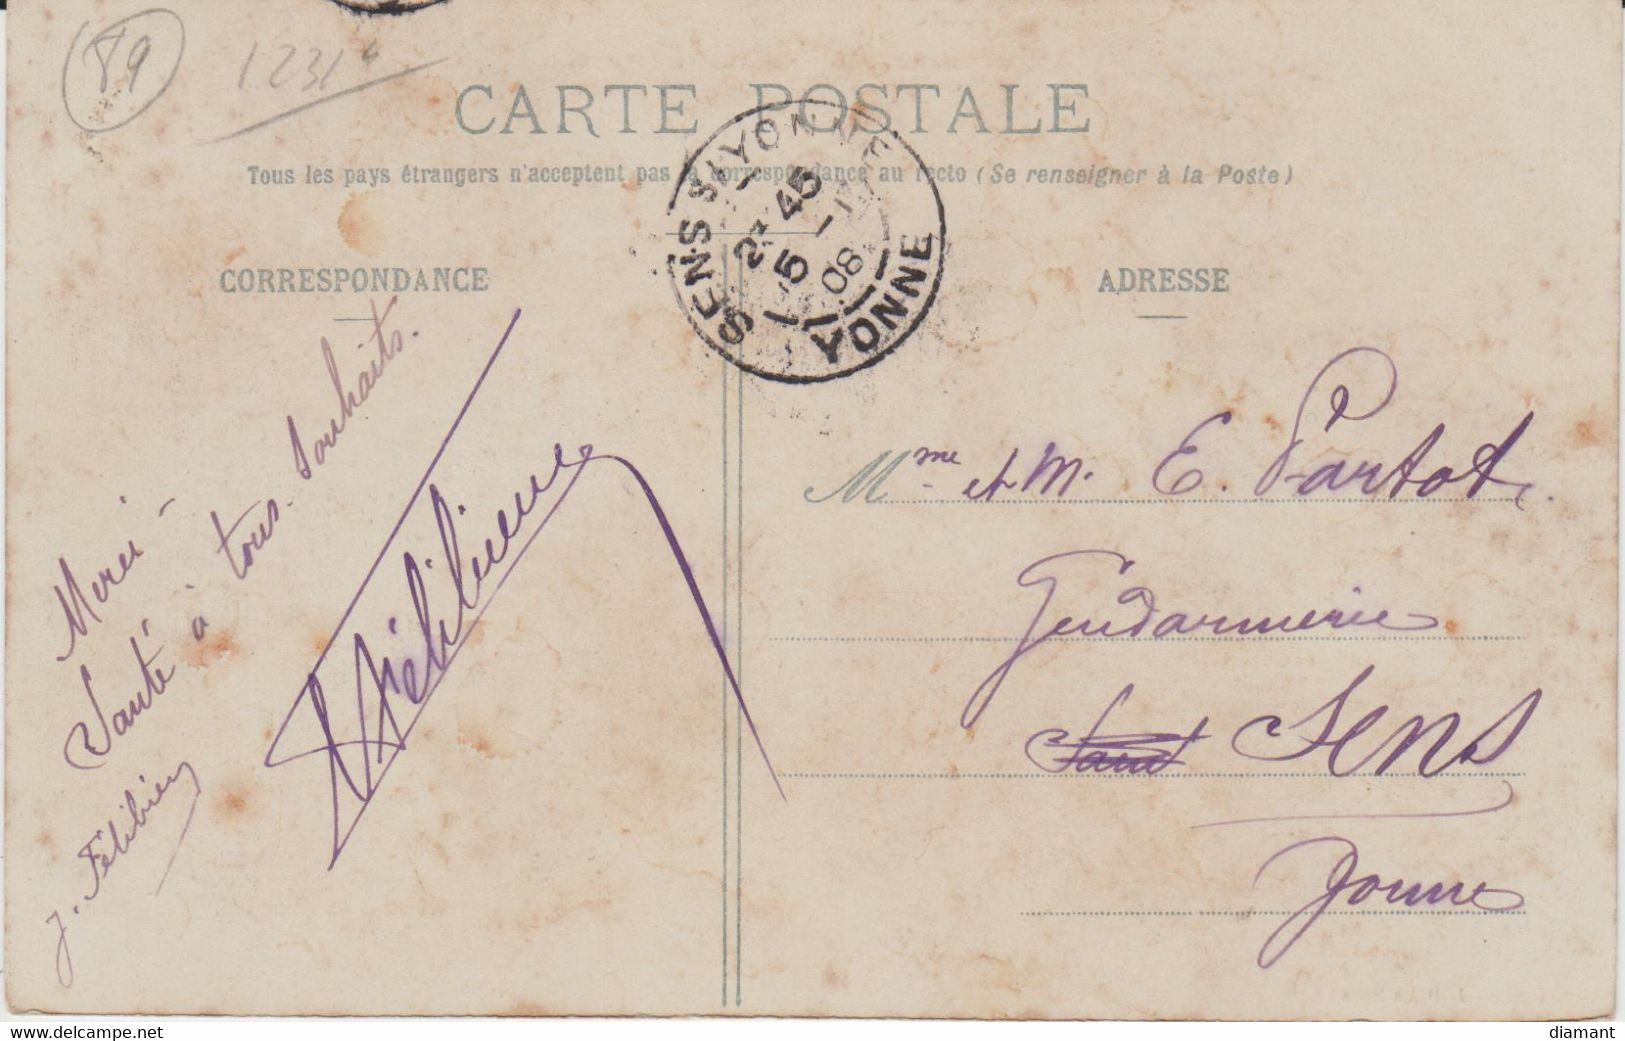 89
1231
CARTE POSTALE
Tous les pays étrangers n'acceptent pas la correspondance au recto (Se renseigner à la Poste)
SENS S/YONNE
2* 45
5 - 1
08
YONNE
CORRESPONDANCE
Merci -
Santé à tous. Souhaits.
Félibien
J. Félibien
ADRESSE
Mme et M. E. Partot.
Gendarmerie
Sens
Yonne
www.delcampe.net
diamant